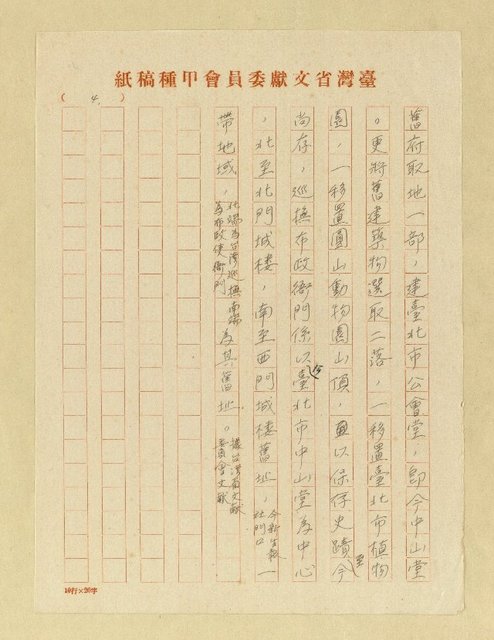 臺灣省文獻委員會甲種稿紙
(4.)
舊府取地一部，建臺北市公會堂，即今中山堂
。更將舊建築物選取二落，一移置臺北市植物
園，一移置圓山動物園山頂，直以保存史蹟至今
尚存，巡撫布政衙門係以今臺北市中山堂為中心
，北至北門城楼，南至西門城楼舊址，今新生報社門口一
帶地域，北端為台湾巡撫南端為布政使衙門為其舊址。據台湾省文献委員會文献
10行×20字